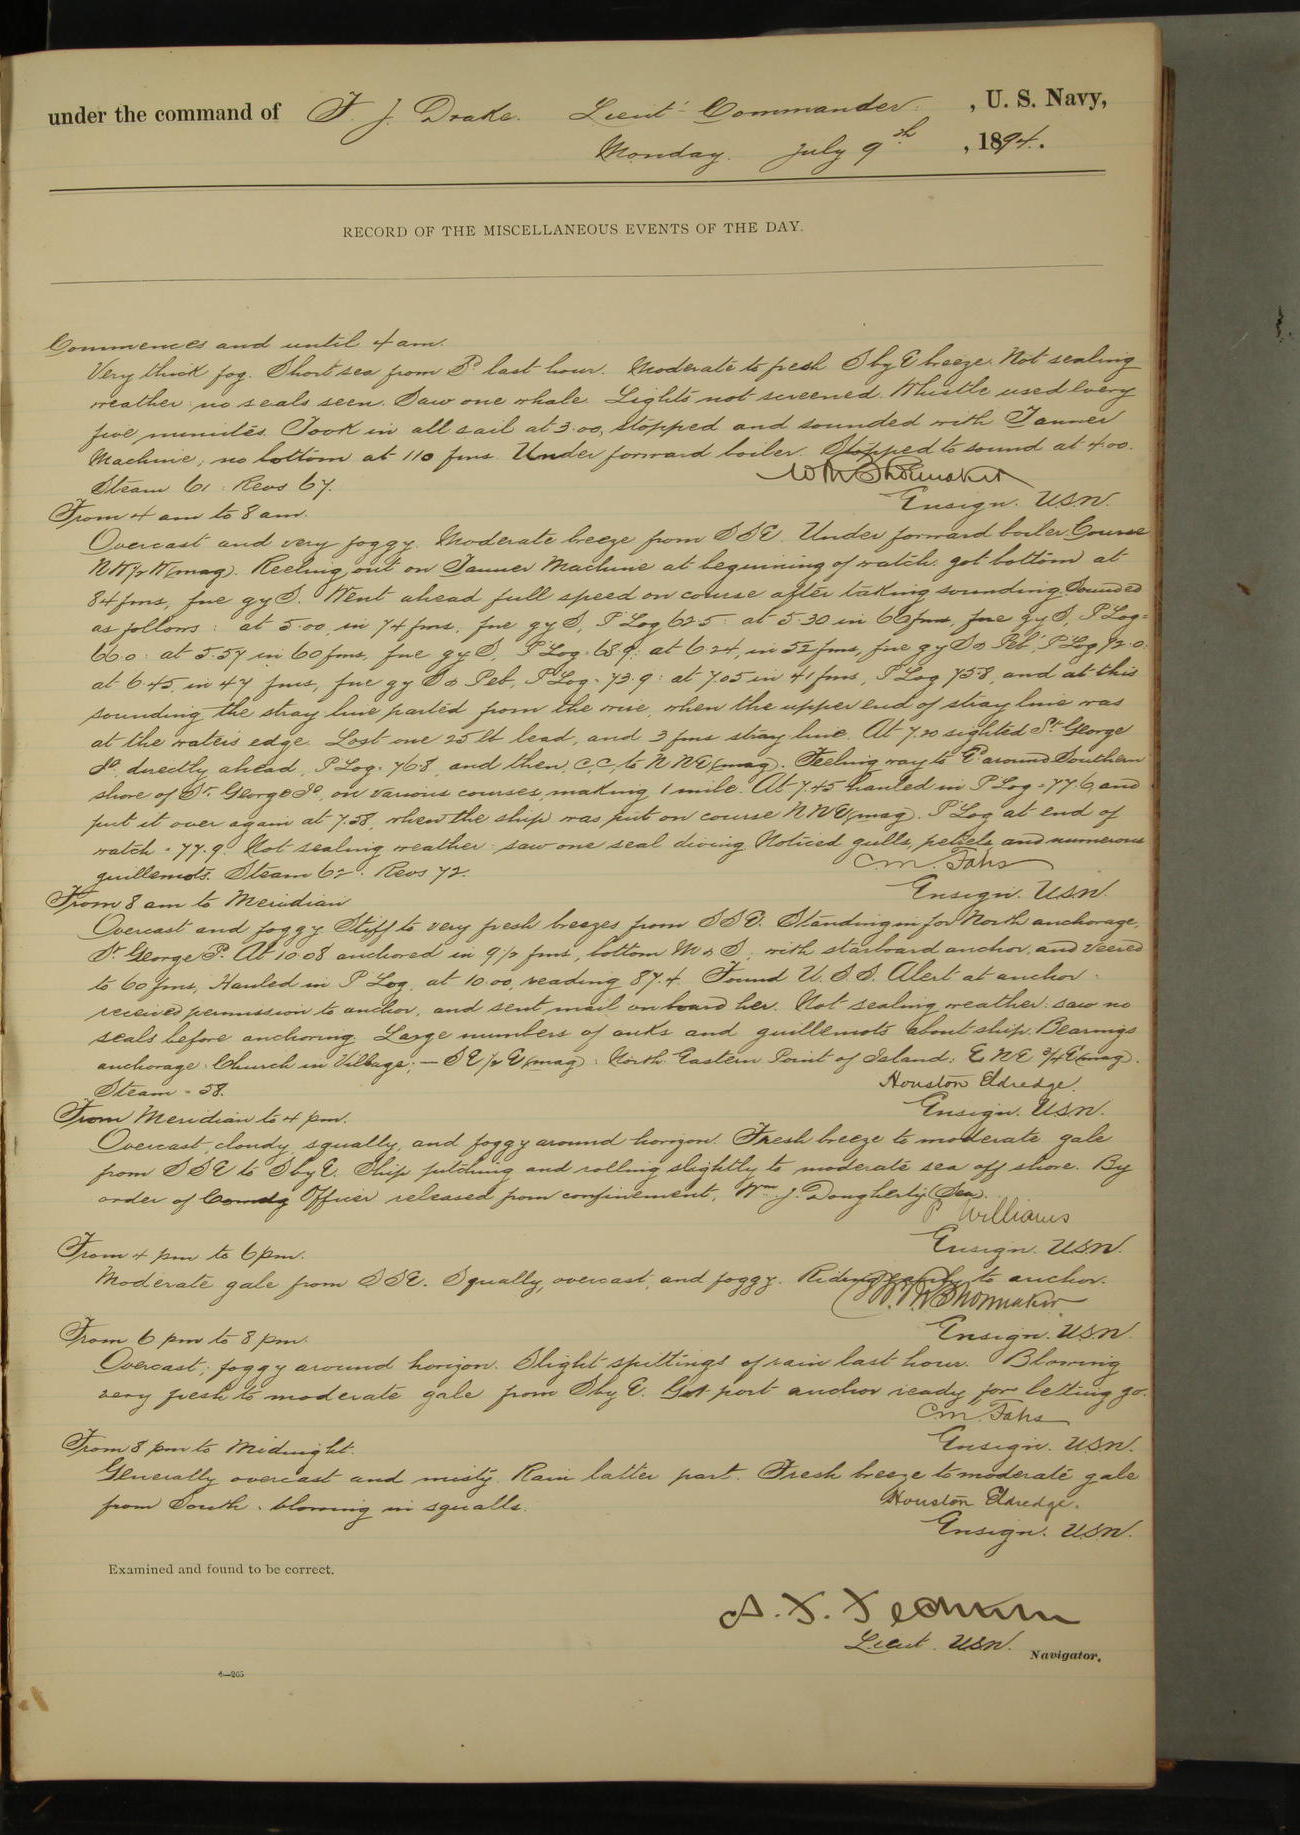 under the command of F. J. Drake. Lieut-Commander. , U. S. Navy,
Monday. July 9th , 1894.
RECORD OF THE MISCELLANEOUS EVENTS OF THE DAY.
Commences and until 4 am.
Very thick fog. Short sea from Sd last hour. Moderate to fresh S by E breeze. Not sealing
weather: no seals seen. Saw one whale. Lights not screened. Whistle used every
five minutes. Took in all sail at 3.00, stopped and sounded with Tanner
Machine; no bottom at 110 fms. Under forward boiler. Stopped to sound at 4.00.
Steam 61: Revs 67.
W R Shoemaker
Ensign. U.S.N.
From 4 am to 8 am.
Overcast and very foggy. Moderate breeze from SSE. Under forward boiler. Course
NW½W (mag). Reeling out on Tanner Machine at beginning of watch: got bottom at
84 fms, fne gy S. Went ahead full speed on course after taking sounding. Sounded
as follows: at 5.00, in 74 fms, fne gy S, P Log 62.5: at 5.30 in 66 fms, fne gy S, P Log =
66.0: at 5.57 in 60 fms, fne gy S, P Log = 68.9: at 6.24, in 52 fms, fne gy S & Peb, P Log 72.0:
at 6.45, in 47 fms, fne gy S & Peb, P Log = 73.9: at 7.05 in 41 fms, P Log 75.8, and at this
sounding the stray line parted from the wire, when the upper end of stray line was
at the waters edge. Lost one 25 lb lead, and 3 fms stray line. At 7.20 sighted St. George
Id. directly ahead, P Log = 76.8, and then c.c. to NNE (mag). Feeling way to Ed around Southern
shore of St. George Id, on various courses, making 1 mile. At 7.45 hauled in P Log = 77.6, and
put it over again at 7.58, when the ship was put on course NNE (mag). P Log at end of
watch = 77.9. Not sealing weather: saw one seal diving. Noticed gulls, petrels and numerous
guillemots. Steam 62. Revs 72.
C.M. Fahs
Ensign. U.S.N.
From 8 am to Meridian
Overcast and foggy. Stiff to very fresh breezes from SSE. Standing in for North anchorage,
St George Id. At 10.08 anchored in 9½ fms, bottom M & S, with starboard anchor, and veered
to 60 fms, Hauled in P Log, at 10.00, reading 87.4. Found U.S.S. Alert at anchor:
received permission to anchor, and sent mail on board her. Not sealing weather: saw no
seals before anchoring. Large numbers of auks and guillemots about ship. Bearings
anchorage: Church in Village; — SE½E (mag): North Eastern Point of Island: ENE¾E (mag).
Steam = 58.
Houston Eldredge.
Ensign. U.S.N.
From Meridian to 4 pm.
Overcast, cloudy, squally, and foggy around horizon. Fresh breeze to moderate gale
from SSE to S by E. Ship pitching and rolling slightly to moderate sea off shore. By
order of Comdg Officer released from confinement, Wm J. Dougherty (Sea).
P Williams
Ensign. U.S.N.
From 4 pm to 6 pm.
Moderate gale from SSE. Squally, overcast, and foggy. Riding easily to anchor.
W. R. Shoemaker.
Ensign. U.S.N.
From 6 pm to 8 pm.
Overcast; foggy around horizon. Slight spittings of rain last hour. Blowing
very fresh to moderate gale from S by E. Got port anchor ready for letting go.
C.M. Fahs
Ensign. U.S.N.
From 8 pm to Midnight.
Generally overcast and misty. Rain latter part. Fresh breeze to moderate gale
from South: blowing in squalls.
Houston Eldredge.
Ensign. U.S.N.
Examined and found to be correct.
Lieut. U.S.N. Navigator.
6—265